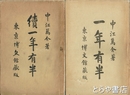 中江篤介著
一年有半
東京博文館藏版
中江篤介著
續一年有半
東京博文館藏版